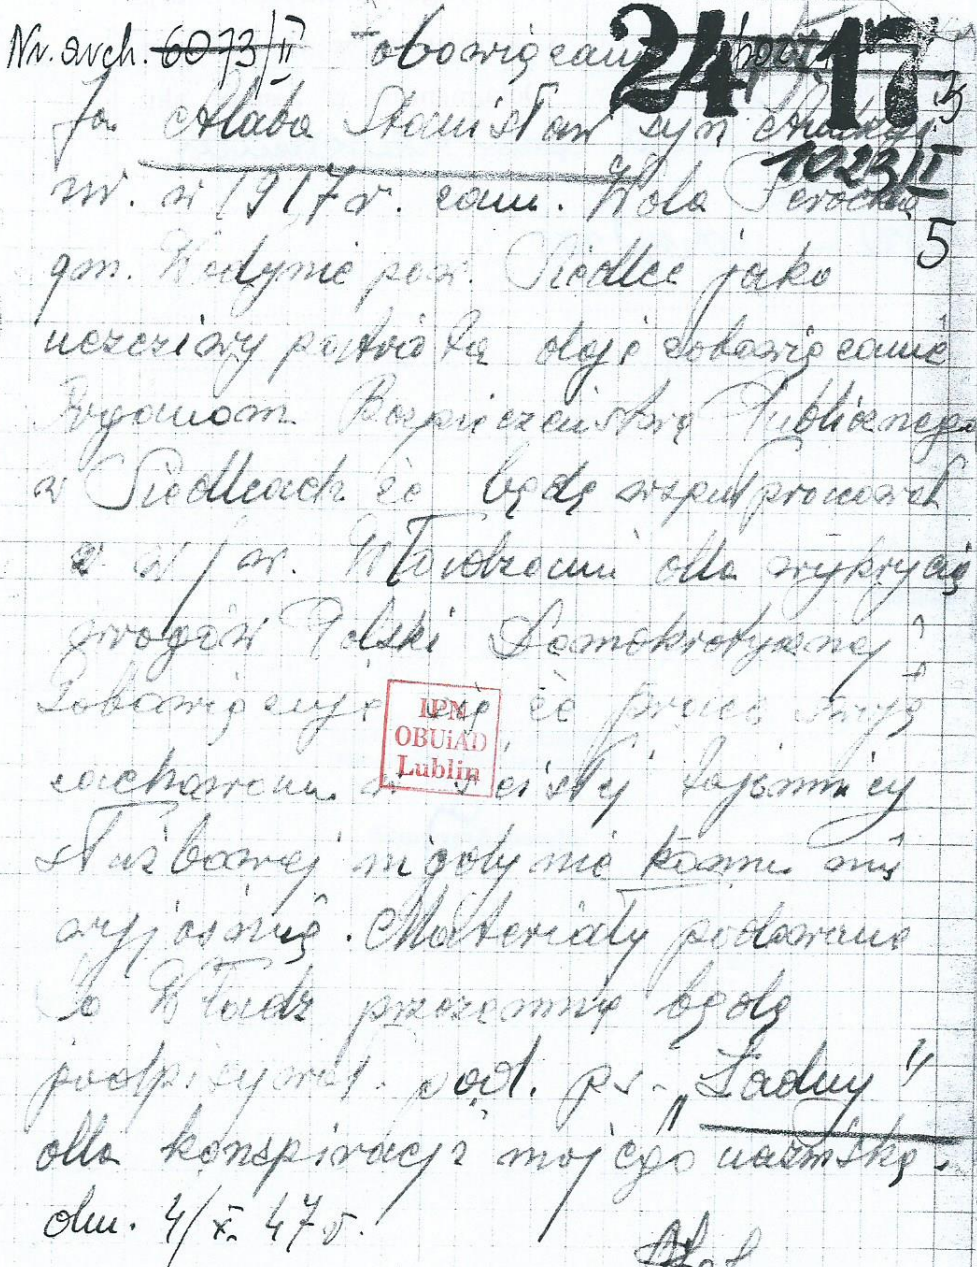 Nr. arch. 6073/II Zobowiązanie
24 17
3
Ja Ałaba Stanisław syn
1023/II
ur. w 1917 r. zam. Wola
5
gm. Wodynie pow. Siedlce jako
uczciwy patriota daję zobowiązanie
Organom Bezpieczeństwa Publicznego
w Siedlcach że będę współpracował
z w/w. Władzami dla wykrycia
wrogów Polski Demokratycznej
Zobowiązuję się że pracę swoją
zachowam w ścisłej tajemnicy
służbowej nigdy nie komu nie
wyjaśnię. Materiały podawane
do Władz przezemnie będę
podpisywał pod. ps. „Ładny"
dla konspiracji mojego nazwiska.
dn. 4/X. 47 r.
IPN
OBUiAD
Lublin